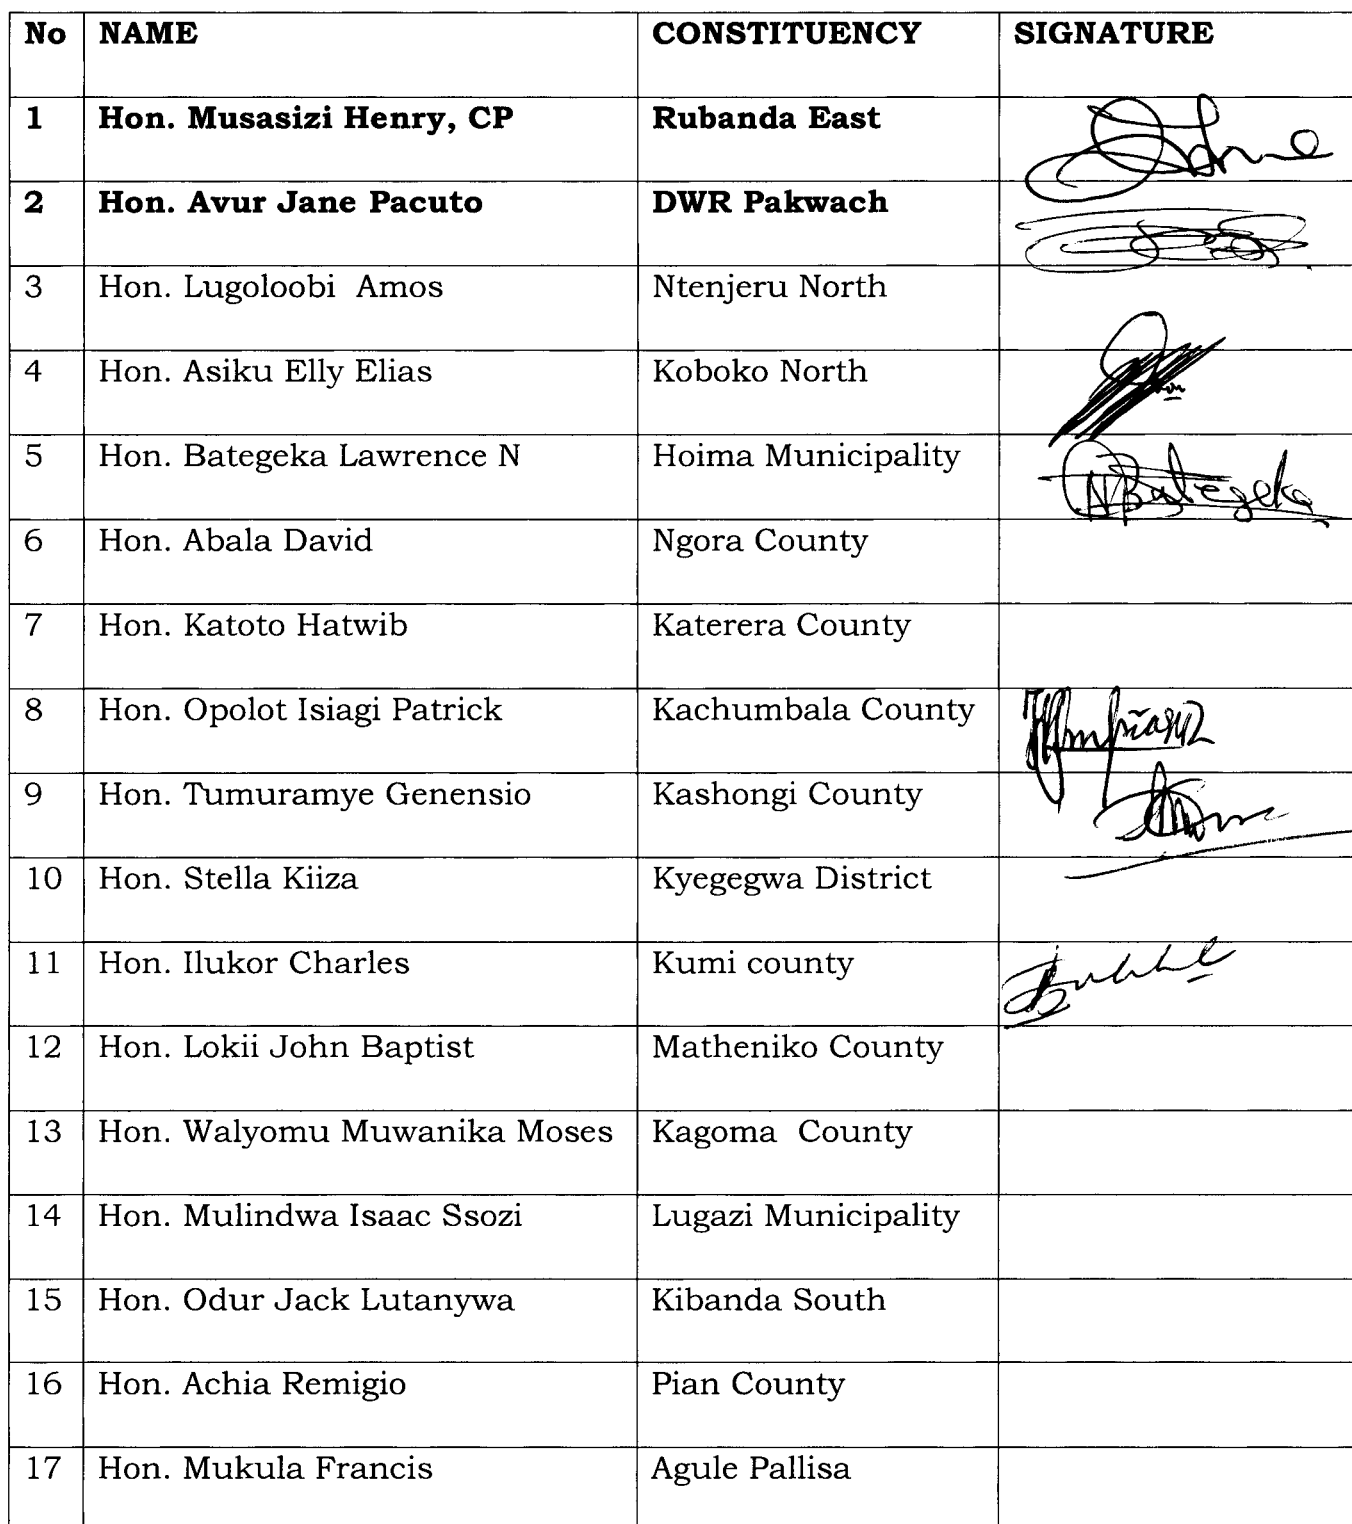 No NAME CONSTITUENCY SIGNATURE
1 Hon. Musasizi Henry, CP Rubanda East
2 Hon. Avur Jane Pacuto DWR Pakwach
3 Hon. Lugoloobi Amos Ntenjeru North
4 Hon. Asiku Elly Elias Koboko North
5 Hon. Bategeka Lawrence N Hoima Municipality NBategeka
6 Hon. Abala David Ngora County
7 Hon. Katoto Hatwib Katerera County
8 Hon. Opolot Isiagi Patrick Kachumbala County
9 Hon. Tumuramye Genensio Kashongi County
10 Hon. Stella Kiiza Kyegegwa District
11 Hon. Ilukor Charles Kumi county
12 Hon. Lokii John Baptist Matheniko County
13 Hon. Walyomu Muwanika Moses Kagoma County
14 Hon. Mulindwa Isaac Ssozi Lugazi Municipality
15 Hon. Odur Jack Lutanywa Kibanda South
16 Hon. Achia Remigio Pian County
17 Hon. Mukula Francis Agule Pallisa